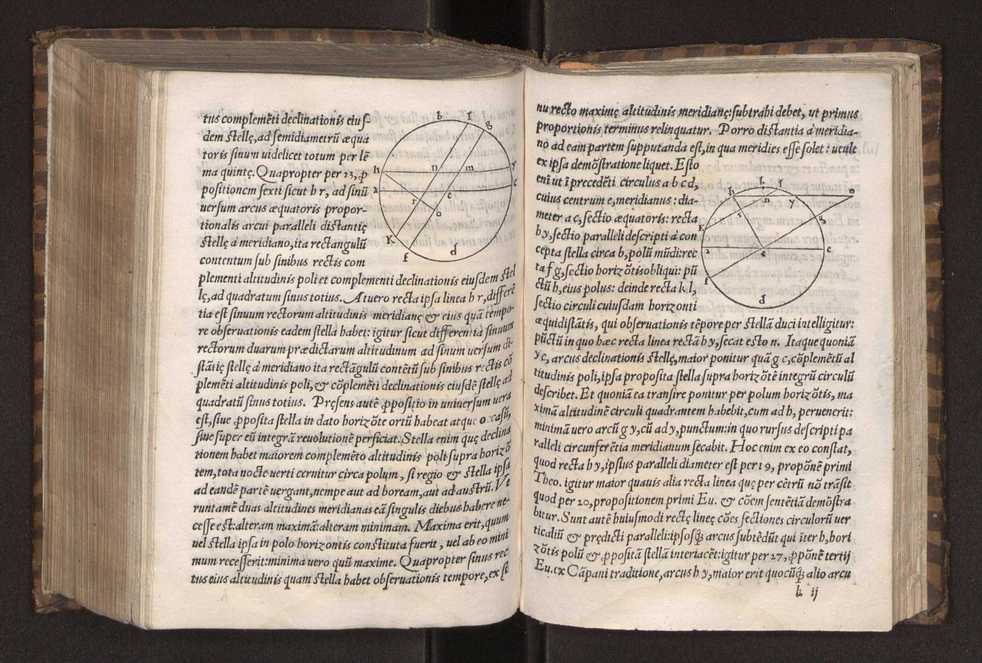 tus complemēti declinationis eius
dem stellę, ad semidiametrū æqua
toris sinum uidelicet totum per lē
ma quintę. Quapropter per 23, ꝓ
positionem sexti sicut h r, ad sinū
uersum arcus æquatoris propor-
tionalis arcui paralleli distantię
stellę á meridiano, ita rectangulū
contentum sub sinibus rectis com
plementi altitudinis poli et complementi declinationis eiusdem stel
lę, ad quadratum sinus totius. At uero recta ipsa linea h r, differē
tia est sinuum rectorum altitudinis meridianę & eius quā tempo-
re obseruationis eadem stella habet: igitur sicut differentia sinuum
rectorum duarum prædictarum altitudinum ad sinum uersum di-
stātię stellę á meridiano ita rectāgulū contētū sub sinibus rectis cō
plemēti altitudinis poli, & cōplemēti declinationis eiusdē stellę ad
quadratū sinus totius. Pręsens autē ꝓpositio in uniuersum uera
est, siue ꝓposita stella in dato horizōte ortū habeat atque occasū,
siue super eū integrā reuolutionē perficiat. Stella enim quę declina
tionem habet maiorem complemēto altitudinis poli supra horizō
tem, tota nocte uerti cernitur circa polum, si regio & stella ipsa
ad eandē partē uergant, nempe aut ad boream, aut ad austrū. Ve
runtamē duas altitudines meridianas eā singulis diebus habere ne-
cesse est: alteram maximā: alteram minimam. Maxima erit, quum
uel stella ipsa in polo horizontis constituta fuerit, uel ab eo mini
mum recesserit: minima uero quū maxime. Quapropter sinus rec
tus eius altitudinis quam stella habet obseruationis tempore, ex si
b f g
h n m y
a c
r e
o
K
f d
nu recto maximę altitudinis meridianę subtrahi debet, ut primus
proportionis terminus relinquatur. Porro distantia á meridia-
no ad eam partem supputanda est, in qua meridies esse solet: ut ule
ex ipsa demōstratione liquet. Esto
enī ut ī precedēti circulus a b c d,
cuius centrum e, meridianus: dia-
meter a c, sectio æquatoris: recta
h y, sectio paralleli descripti á con
cepta stella circa b, polū mūdi: rec
ta f g, sectio horizōtis obliqui: pū
ctū h, eius polus: deinde recta k l,
sectio circuli cuiusdam horizonti
æquidistātis, qui obseruationis tēpore per stellā duci intelligitur:
pūctū in quo hæc recta linea rectā h y, secat esto n. Itaque quoniā
y c, arcus declinationis stellę, maior ponitur quā g c, cōplemētū al
titudinis poli, ipsa proposita stella supra horizōtē integrū circulū
describet. Et quoniā ea transire ponitur per polum horizōtis, ma
ximā altitudinē circuli quadrantem habebit, cum ad h, peruenerit:
minimā uero arcū g y, cū ad y, punctum: in quo rursus descripti pa
ralleli circunferētia meridianum secabit. Hoc enim ex eo constat,
quod recta h y, ipsius paralleli diameter est per 19, propōnē primi
Theo. igitur maior quauis alia recta linea quę per cētrū nō trāsit
quod per 20, propositionem primi Eu. & cōem sentētiā demōstra
bitur. Sunt autē huiusmodi rectę lineę cōes sectiones circulorū uer
ticaliū & prędicti paralleli: ipsosq́ arcus subtēdūt qui īter h, hori
zōtis polū & ꝓpositā stellā interiacēt: igitur per 27, ꝓpōnē tertij
Eu. ex Cāpani traditione, arcus h y, maior erit quocūq́ alio arcu
h ij
n y
g
s
K
a e c
f
d